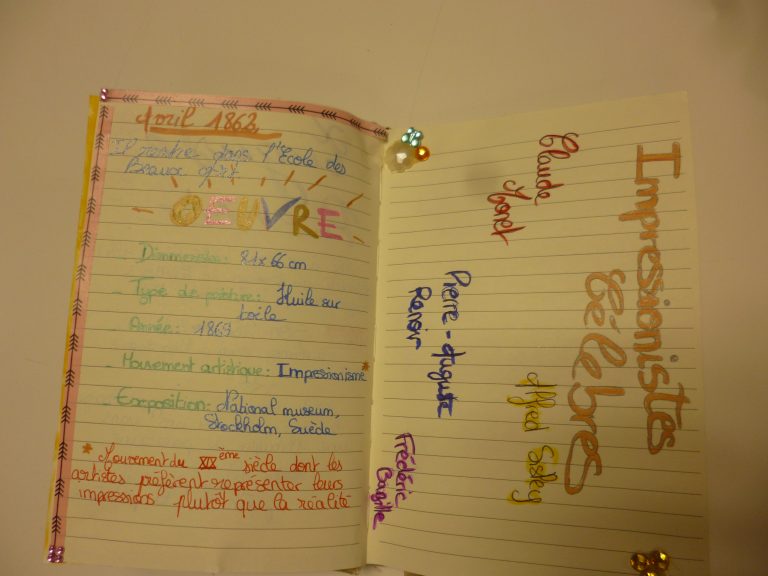 Avril 1862
Il rentre dans l'École des
Beaux Arts
OEUVRE
- Dimmension: 81x66 cm
- Type de peinture: Huile sur
toile
- Année: 1869
- Mouvement artistique: Impressionisme*
- Exposition: National museum,
Stockholm, Suède
* Mouvement du XIXème siècle dont les
artistes préfèrent représenter leurs
impressions plutôt que la réalité
Impressionistes
Célèbres
Claude
Monet
Pierre-Auguste
Renoir
Alfred Sisley
Frédéric
Bazille